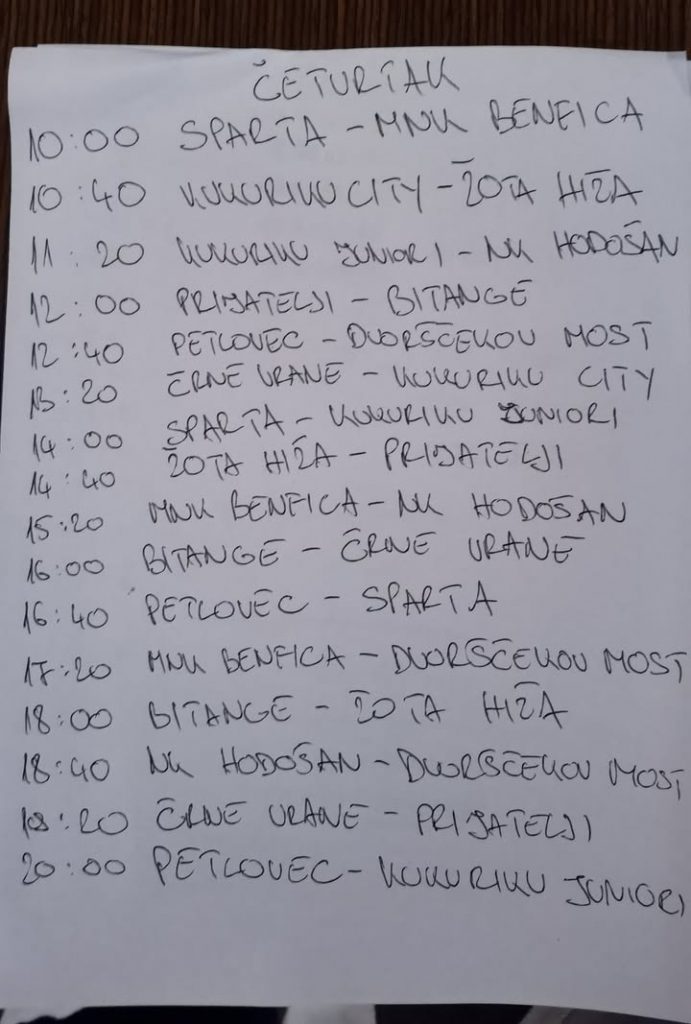 ČETVRTAK
10:00 SPARTA - MNK BENFICA
10:40 KUKURIKU CITY - ŽOTA HIŽA
11:20 KUKURIKU JUNIORI - NK HODOŠAN
12:00 PRIJATELJI - BITANGE
12:40 PETLOVEC - DVORŠČEKOV MOST
13:20 ČRNE VRANE - KUKURIKU CITY
14:00 SPARTA - KUKURIKU JUNIORI
14:40 ŽOTA HIŽA - PRIJATELJI
15:20 MNK BENFICA - NK HODOŠAN
16:00 BITANGE - ČRNE VRANE
16:40 PETLOVEC - SPARTA
17:20 MNK BENFICA - DVORŠČEKOV MOST
18:00 BITANGE - ŽOTA HIŽA
18:40 NK HODOŠAN - DVORŠČEKOV MOST
19:20 ČRNE VRANE - PRIJATELJI
20:00 PETLOVEC - KUKURIKU JUNIORI